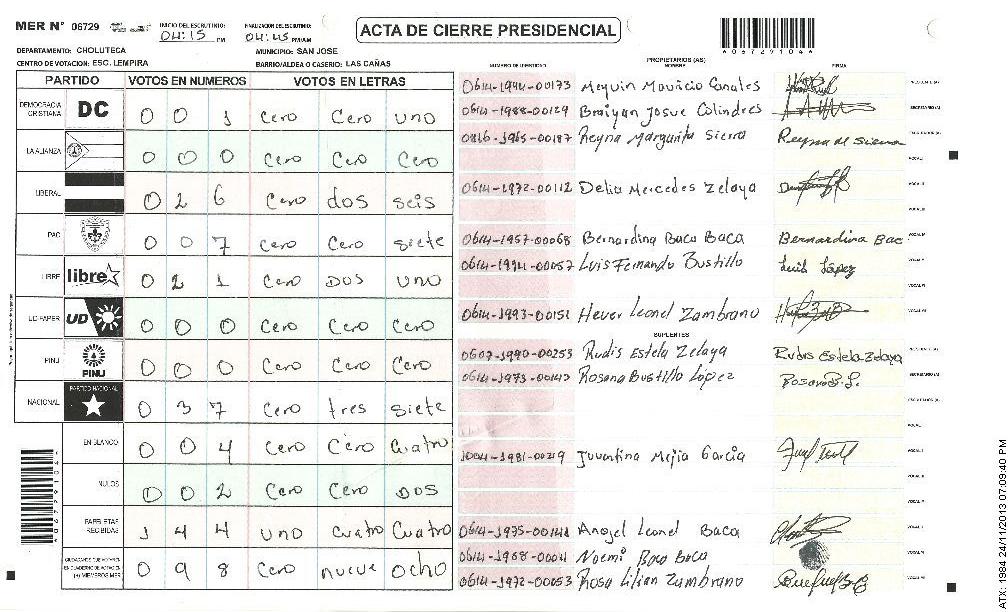 MER Nº 06729
INICIO DEL ESCRUTINIO: 04:15 PM
FINALIZACION DEL ESCRUTINIO: 04:45 PM/AM
ACTA DE CIERRE PRESIDENCIAL
*067291046*
DEPARTAMENTO: CHOLUTECA MUNICIPIO: SAN JOSE
CENTRO DE VOTACION: ESC. LEMPIRA BARRIO/ALDEA O CASERIO: LAS CAÑAS
PARTIDO VOTOS EN NUMEROS VOTOS EN LETRAS
DEMOCRACIA CRISTIANA DC 0 0 1 Cero Cero uno
LA ALIANZA 0 0 0 Cero Cero Cero
LIBERAL 0 2 6 Cero dos seis
PAC 0 0 7 Cero Cero siete
LIBRE libre 0 2 1 Cero DOS UNO
UD-FAPER UD 0 0 0 Cero Cero Cero
PINU PINU 0 0 0 Cero Cero Cero
NACIONAL PARTIDO NACIONAL 0 3 7 Cero tres siete
EN BLANCO 0 0 4 Cero Cero Cuatro
NULOS 0 0 2 Cero Cero DOS
PAPELETAS RECIBIDAS 1 4 4 uno Cuatro Cuatro
CIUDADANOS QUE VOTARON EN CUADERNO DE VOTACION (+) MIEMBROS MER 0 9 8 Cero nueve ocho
NUMERO DE IDENTIDAD PROPIETARIOS (AS) NOMBRE FIRMA
0614-1994-00173 Mequin Mauricio Canales PRESIDENTE (A)
0614-1988-00129 Braiyan Josue Colindres SECRETARIO (A)
0816-1965-00187 Reyna Margarita Sierra Reyna M Sierra ESCRUTADOR (A)
VOCAL I
0614-1972-00112 Delia Mercedes Zelaya VOCAL II
VOCAL III
0614-1957-00068 Bernardina Baca Baca Bernardina Bac VOCAL IV
0614-1994-00057 Luis Fernando Bustillo Luis López VOCAL V
VOCAL VI
0614-1993-00151 Hever Leonel Zambrano VOCAL VII
SUPLENTES
0607-1990-00253 Rudis Estela Zelaya Rudis Estela Zelaya PRESIDENTE (A)
0614-1973-00143 Rosana Bustillo López Rosana B.L. SECRETARIO (A)
ESCRUTADOR (A)
VOCAL I
1004-1981-00219 Juventina Mejia Garcia VOCAL II
VOCAL III
VOCAL IV
0614-1975-00144 Angel Leonel Baca VOCAL V
0614-1968-00041 Noemi Baca Baca VOCAL VI
0614-1972-00053 Rosa Lilian Zambrano VOCAL VII
ATX: 1984 24/11/2013 07:09:40 PM